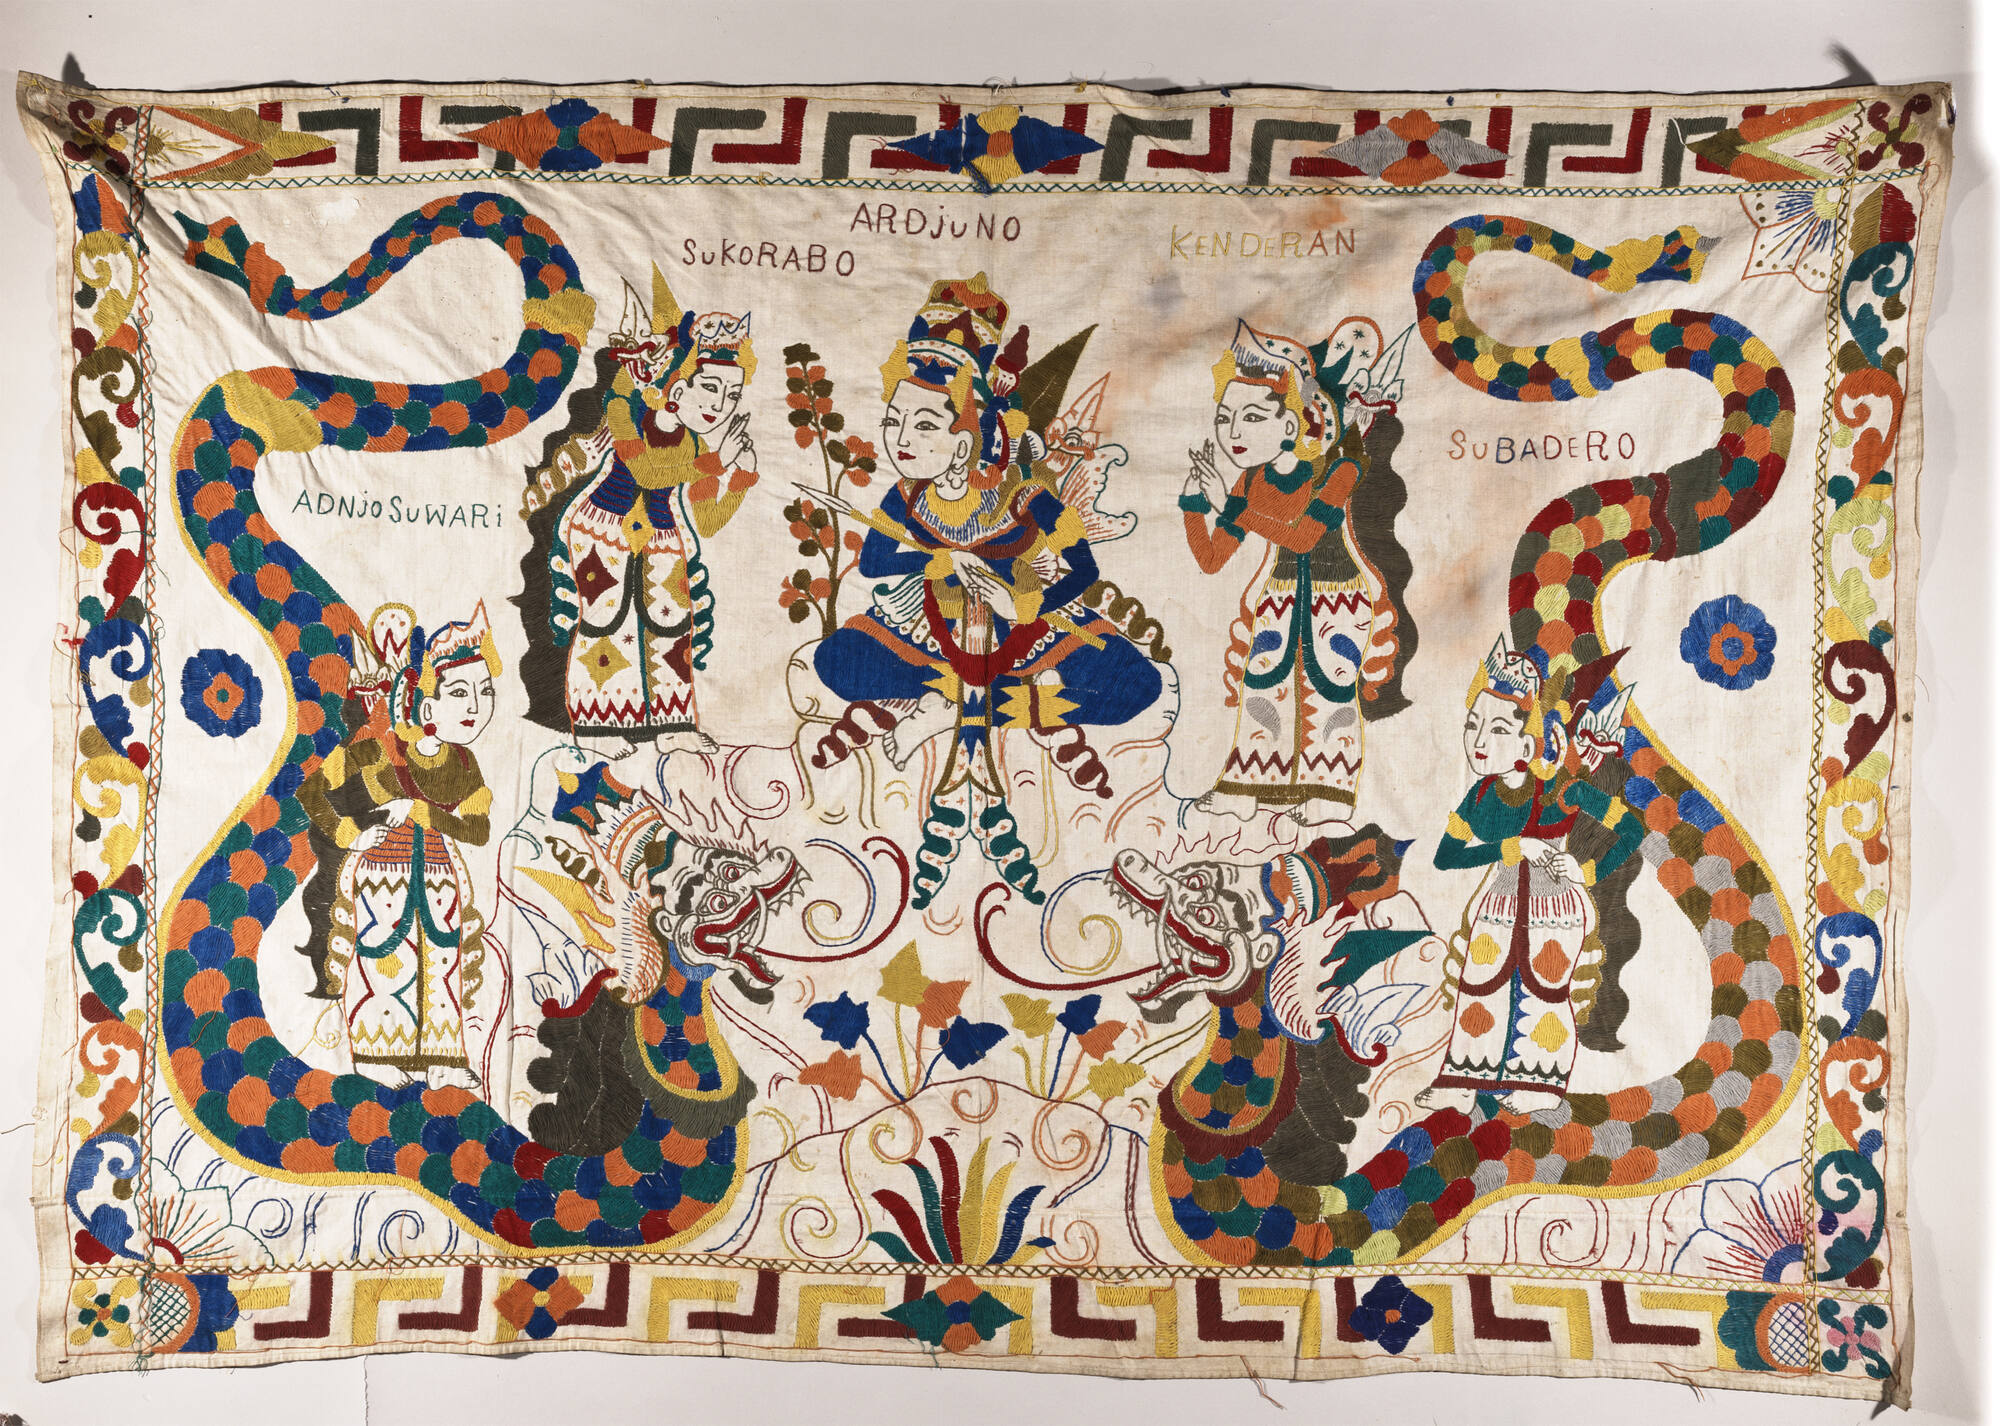 ARDjuNO
SuKORABO
KENDERAN
SuBADERO
ADNjOSuWARi